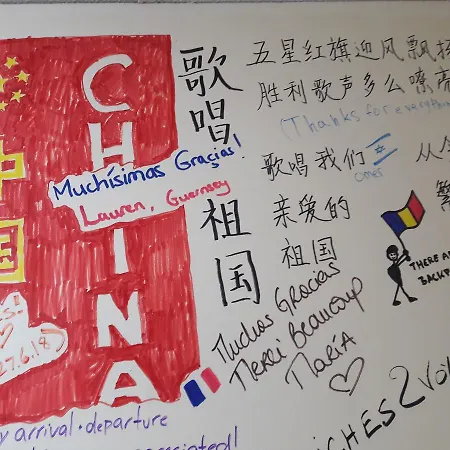 中国
CHINA
Muchísimas Graçias!
Lauren, Guernsey
27.6.18
歌唱祖国
五星红旗迎风飘扬
胜利歌声多么嘹亮
(Thanks for everything
歌唱我们
omer
亲爱的
祖国
从
繁
THERE AR
BACKP
Muchos Gracias
Merci Beaucoup
MaRíA
ICHES 2 VO
y arrival · departure